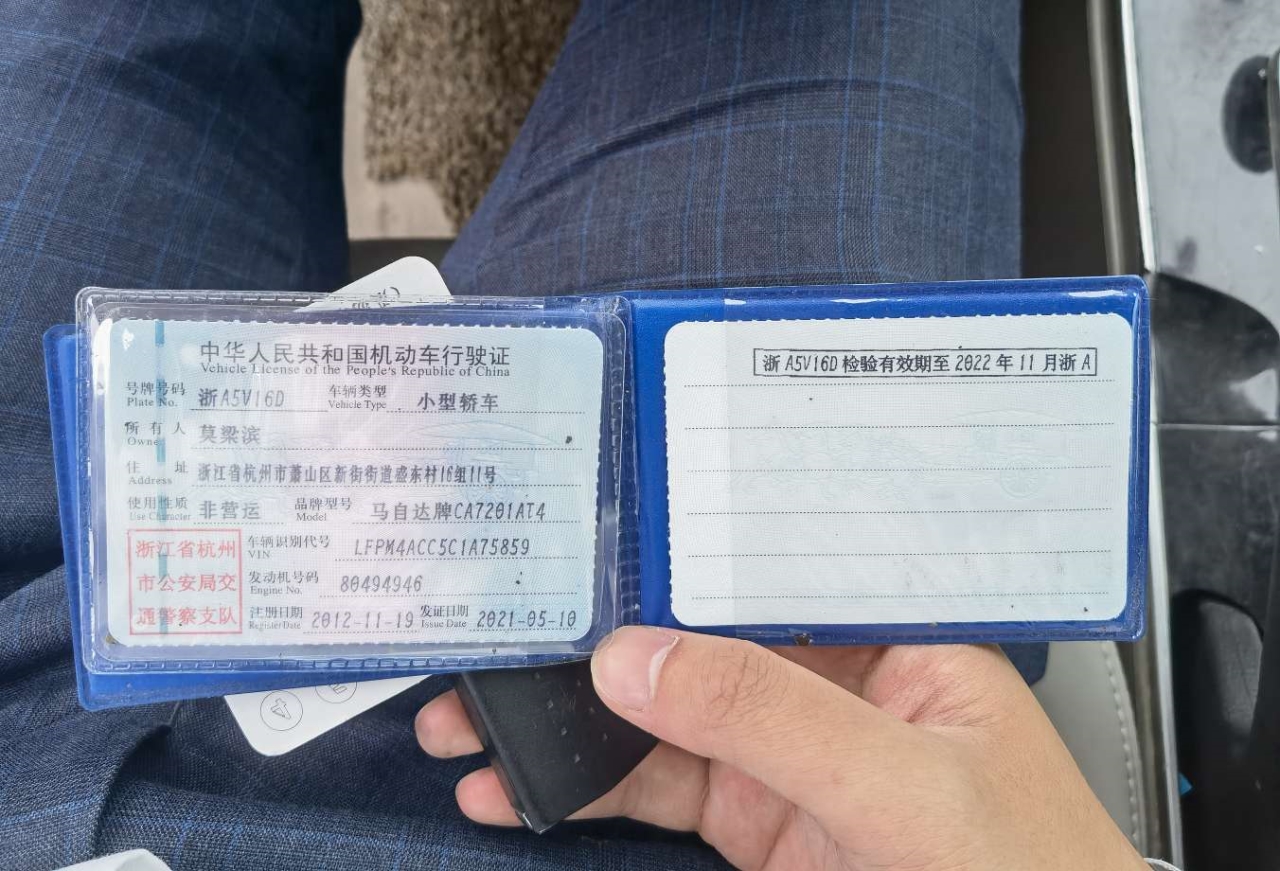 中华人民共和国机动车行驶证
Vehicle License of the People's Republic of China
号牌号码 浙A5V16D 车辆类型 小型轿车
Plate No. Vehicle Type
所有人 莫梁滨
Owner
住址 浙江省杭州市萧山区新街街道盛东村16组11号
Address
使用性质 非营运 品牌型号 马自达牌CA7201AT4
Use Character Model
浙江省杭州
市公安局交
通警察支队
车辆识别代号 LFPM4ACC5C1A75859
VIN
发动机号码 80494946
Engine No.
注册日期 2012-11-19 发证日期 2021-05-10
Register Date Issue Date
浙A5V16D检验有效期至2022年11月浙A